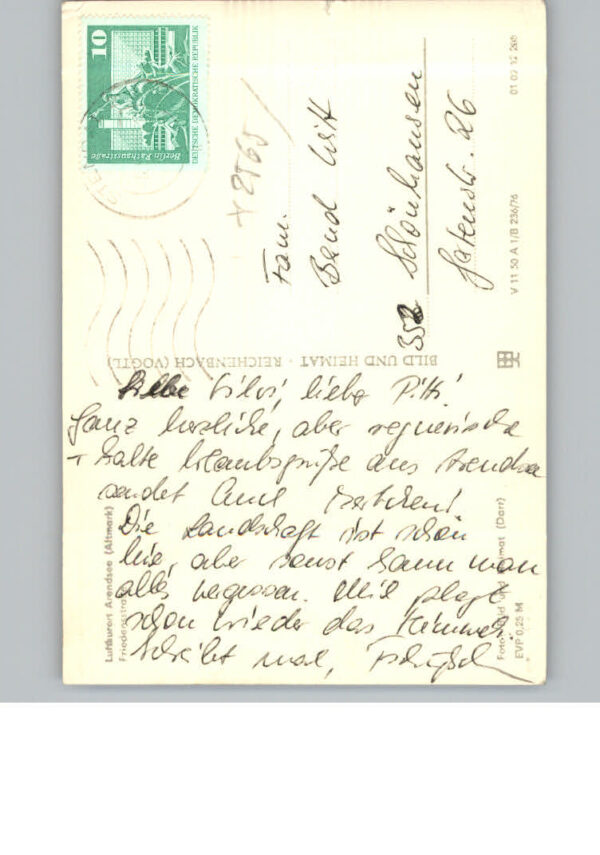 10
DEUTSCHE DEMOKRATISCHE REPUBLIK
Berlin, Rathausstraße
Fam.
Bernd Witt
Schönhausen
26
01 02 12 260
V 11 50 A 1/B 236/76
BILD UND HEIMAT · REICHENBACH (VOGTL)
liebe Silvi, liebe Pitti
Ganz herzliche, aber regnerische
+ kalte Urlaubsgrüße aus Arendsee
sendet Euch
Die Landschaft ist schön
hier, aber sonst kann man
alles vergessen. Mich plagt
schon wieder das Heimweh.
Schreibt mal,
Luftkurort Arendsee (Altmark)
Friedensstraße
Foto: Bild und Heimat (Darr)
EVP 0,25 M